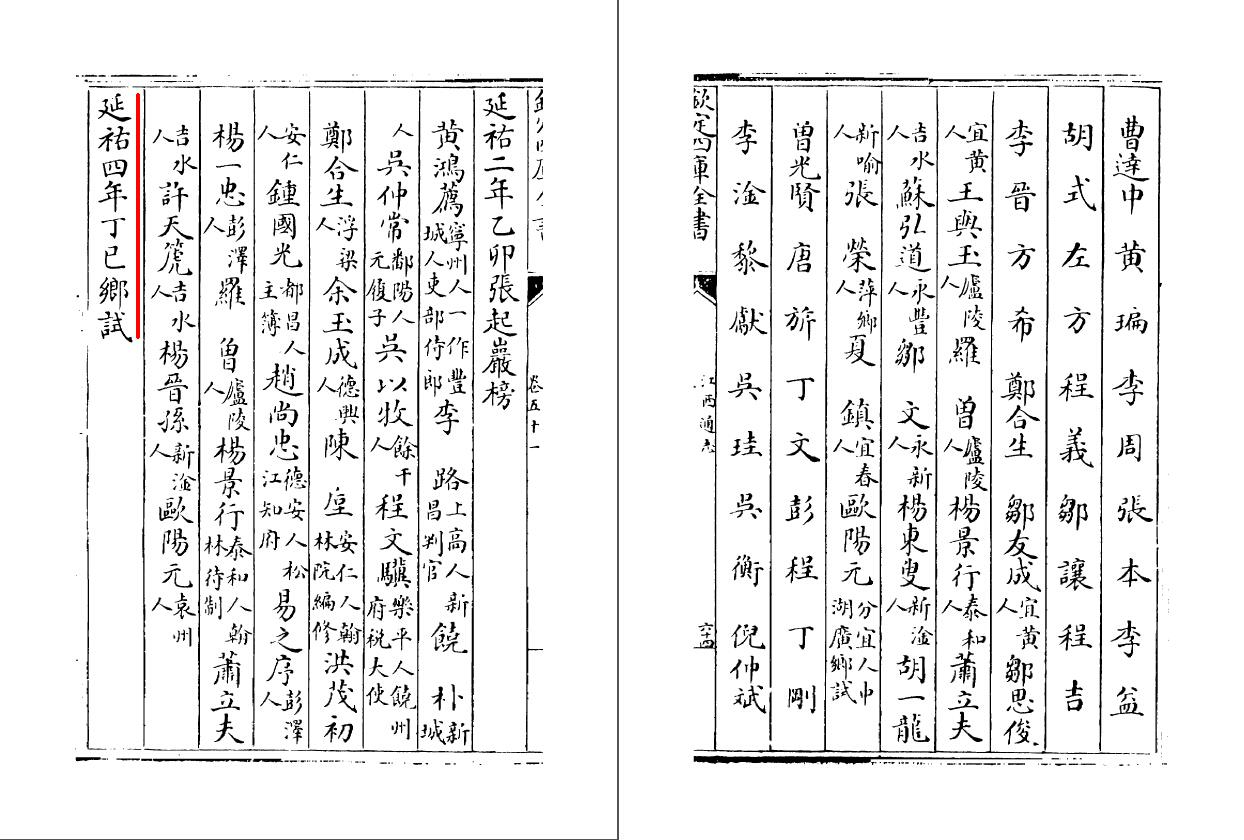 曹達中黄㻞李周張本李益
胡式左方程義鄒讓程吉
李晉方希鄭合生鄒友成宜黄人鄒思俊
宜黄人王與玉廬陵人羅曾廬陵人楊景行泰和人蕭立夫
吉水人蘇弘道永豐人鄒文永新人楊東叟新淦人胡一龍
新喻人張榮萍鄉人夏鎮宜春人歐陽元分宜人中湖廣鄉試
曽光賢唐旂丁文彭程丁剛
李淦黎獻吳珪吳衡倪仲斌
欽定四庫全書
江西通志
卷五十一
延祐二年乙卯張起巖榜
黄鴻薦寧州人一作豐城人吏部侍郎李路上高人新昌判官饒朴新城
人吳仲常鄱陽人元復子吳以牧餘干人程文驥樂平人饒州府税大使
鄭合生浮梁人余玉成德興人陳𡊮安仁人翰林院編修洪茂初
安仁人鍾國光都昌人主簿趙尚忠德安人松江知府易之序彭澤人
楊一忠彭澤人羅曾廬陵人楊景行泰和人翰林待制蕭立夫
吉水人許天箎吉水人楊晉孫新淦人歐陽元袁州人
延祐四年丁巳鄉試